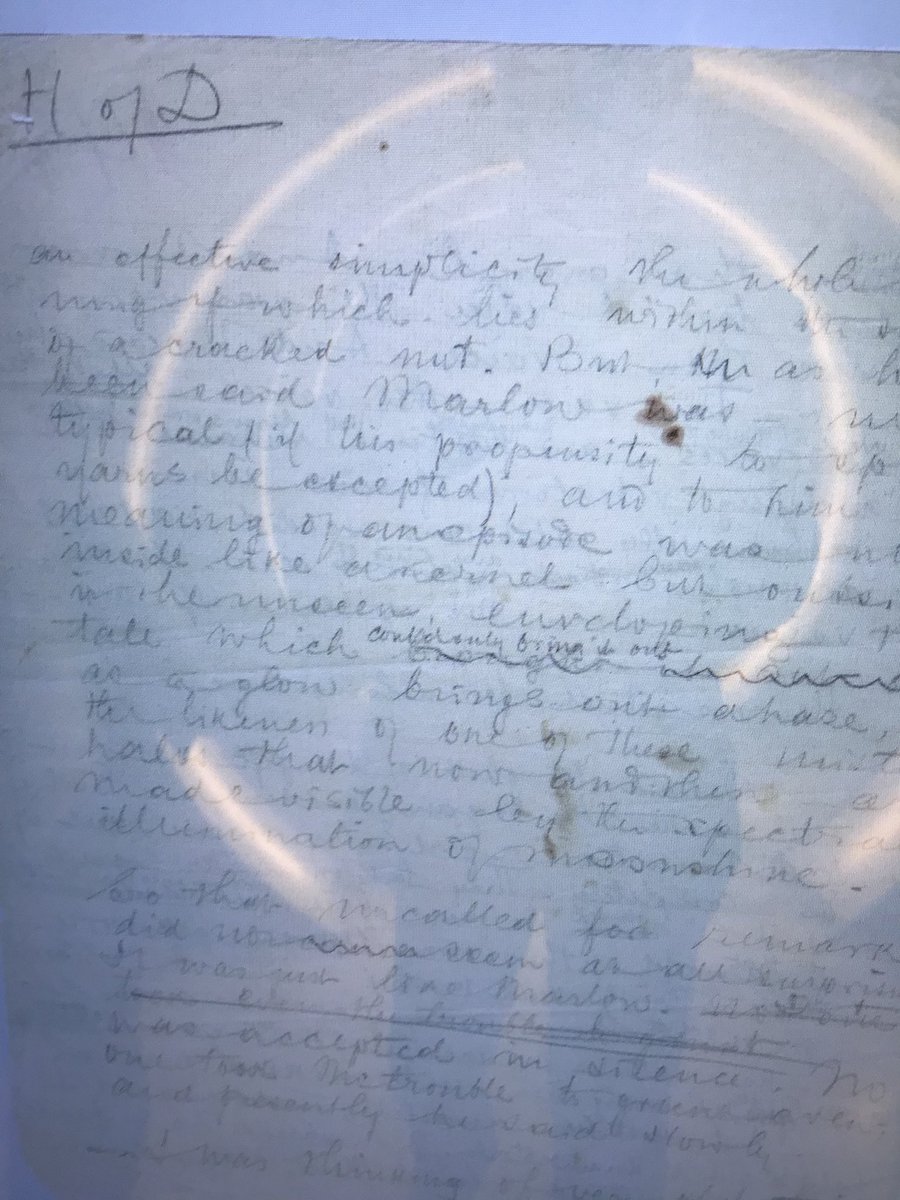 H of D
an effective simplicity the whole
ning of which lies within the s
of a cracked nut. But, as h
been said Marlow was
typical (if his propensity to sp
yarns be excepted), and to him
meaning of an episode was not
inside like a kernel but outsi
in the unseen, enveloping t
tale which
as a glow brings out a haze,
the likeness of one of these mist
halos that now and then a
made visible by the spectra
illumination of moonshine.
uncalled for remark
did not seem at all surprisin
It was just like Marlow.
was accepted in silence. No
one took the trouble to grunt even;
and presently he said slowly
— I was thinking of very old